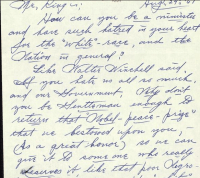 Mr. King - Aug. 29. '67
How can you be a minister
and have such hatred in your heart
for the "white" race, and the
Nation in general?
Like Walter Winchell said,
If you hate us all so much,
and our Government, Why don't
you be Gentleman enough to
return that "Nobel-peace-prize"
that we bestowed upon you,
(as a great honor) so we can
give it to some one who really
deserves it like that poor Negro